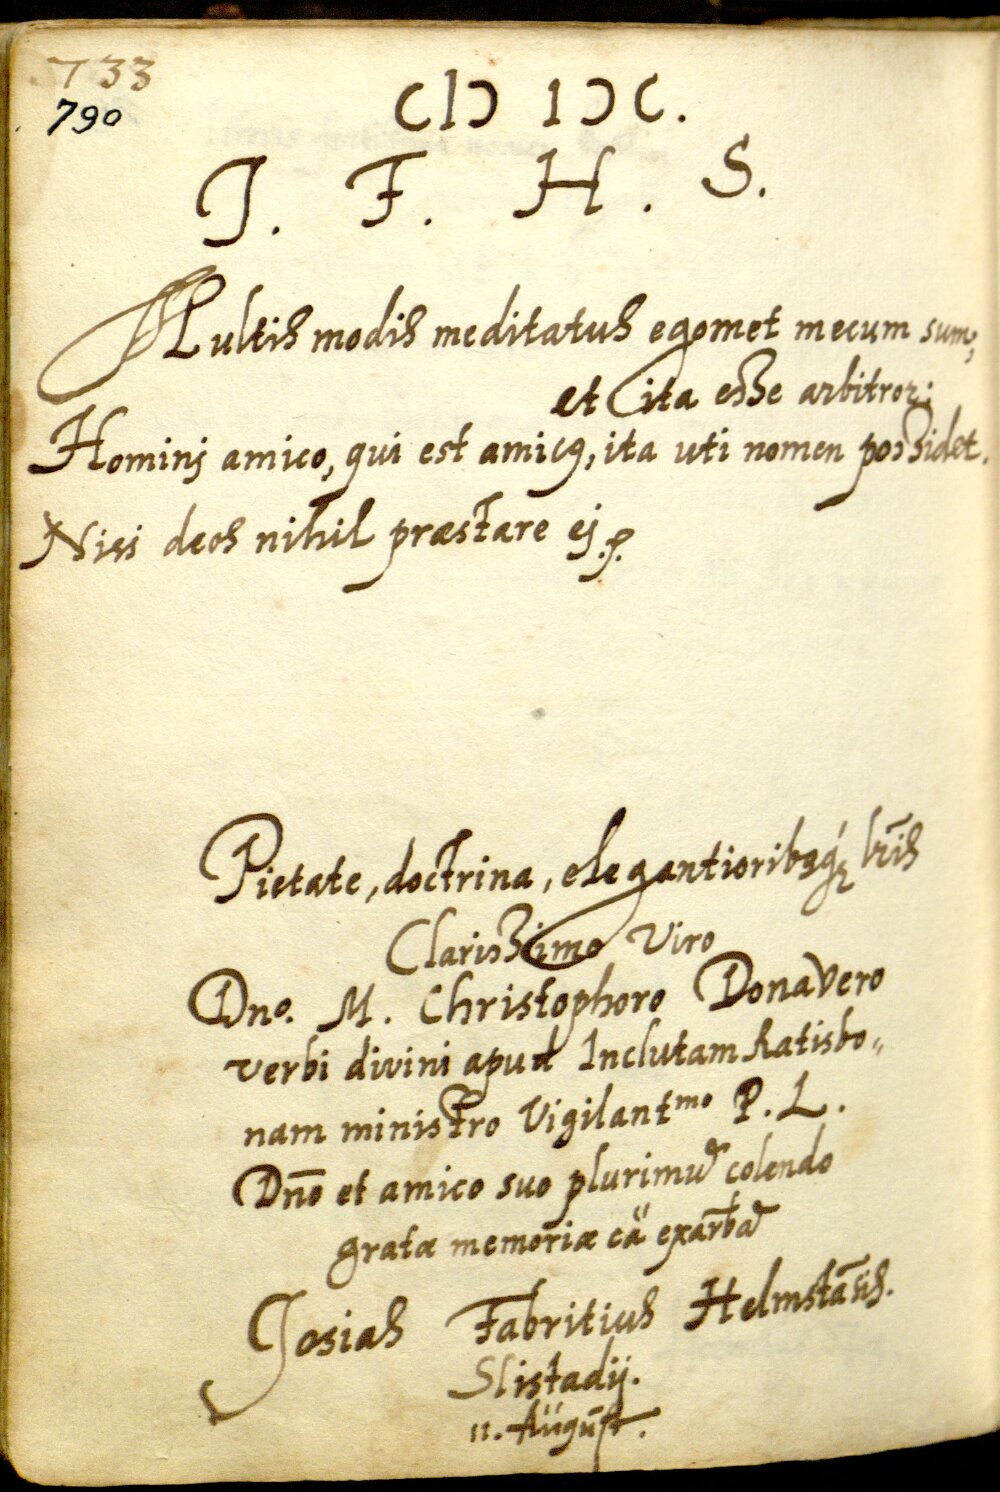 733
790
CIↃ IↃC.
J. F. H. S.
Multis modis meditatus egomet mecum sum,
et ita esse arbitror:
Homini amico, qui est amicꝰ, ita uti nomen possidet.
Nisi deos nihil præstare ei.
Pietate, doctrina, elegantioribꝰq́ꝫ lr̄is
Clarissimo Viro
Dno. M. Christophoro Donavero
verbi divini apud Inclutam Ratisbo„
nam ministro Vigilantmo P. L.
Dn̄o et amico suo plurimu᷈ colendo
gratæ memoriæ cä exar̄ba᷈
Josias Fabritius Helmstāsis.
Slistadij.
11. August.